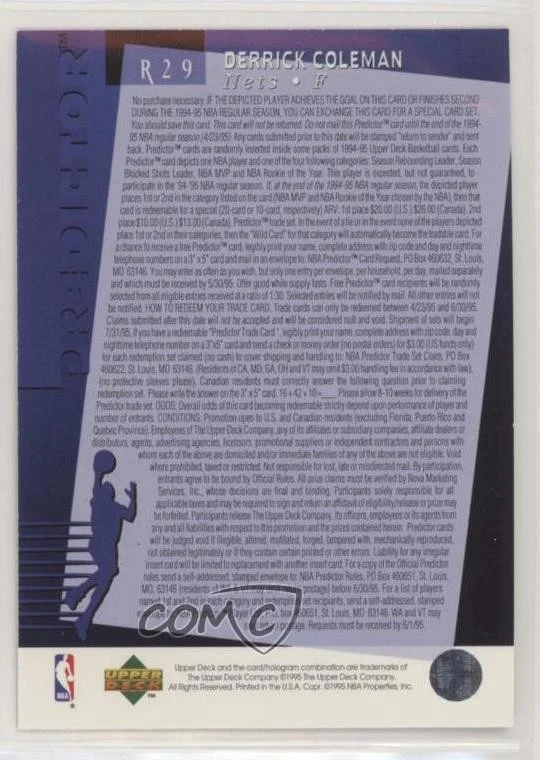 R29
DERRICK COLEMAN
Nets • F
PREDICTOR™
No purchase necessary. IF THE DEPICTED PLAYER ACHIEVES THE GOAL ON THIS CARD OR FINISHES SECOND
DURING THE 1994-95 NBA REGULAR SEASON, YOU CAN EXCHANGE THIS CARD FOR A SPECIAL CARD SET.
You should save this card. This card will not be returned. Do not mail this Predictor™ card until the end of the 1994-
95 NBA regular season (4/23/95). Any cards submitted prior to this date will be stamped "return to sender" and sent
back. Predictor™ cards are randomly inserted inside some packs of 1994-95 Upper Deck Basketball cards. Each
Predictor™ card depicts one NBA player and one of the four following categories: Season Rebounding Leader, Season
Blocked Shots Leader, NBA MVP and NBA Rookie of the Year. This player is expected, but not guaranteed, to
participate in the '94-'95 NBA regular season. If, at the end of the 1994-95 NBA regular season, the depicted player
places 1st or 2nd in the category listed on the card (NBA MVP and NBA Rookie of the Year chosen by the NBA), then that
card is redeemable for a special (20-card or 10-card, respectively) ARV: 1st place $20.00 (U.S.) $26.00 (Canada). 2nd
place $10.00 (U.S.) $13.00 (Canada). Predictor™ trade set. In the event of a tie or in the event none of the players depicted
place 1st or 2nd in their categories, then the "Wild Card" for that category will automatically become the tradable card. For
a chance to receive a free Predictor™ card, legibly print your name, complete address with zip code and day and nighttime
telephone numbers on a 3" x 5" card and mail in an envelope to: NBA Predictor™ Card Request, PO Box 460632, St. Louis,
MO 63146. You may enter as often as you wish, but only one entry per envelope, per household, per day, mailed separately
and which must be received by 5/30/95. Offer good while supply lasts. Free Predictor™ card recipients will be randomly
selected from all eligible entries received at a ratio of 1:30. Selected entries will be notified by mail. All other entries will not
be notified. HOW TO REDEEM YOUR TRADE CARD: Trade cards can only be redeemed between 4/23/95 and 6/30/95.
Claims submitted after this date will not be accepted and will be considered null and void. Shipment of sets will begin
7/31/95. If you have a redeemable "Predictor Trade Card", legibly print your name, complete address with zip code, day and
nighttime telephone number on a 3"x5" card and send a check or money order (no postal orders) for $3.00 (US funds only)
for each redemption set claimed (no cash) to cover shipping and handling to: NBA Predictor Trade Set Claim, PO Box
460622, St. Louis, MO 63146. (Residents of CA, MD, GA, OH and VT may omit $3.00 handling fee in accordance with law),
(no protective sleeves please). Canadian residents must correctly answer the following question prior to claiming
redemption set. Please write the answer on the 3" x5" card. 16+42+10=___. Please allow 8-10 weeks for delivery of the
Predictor trade set. ODDS: Overall odds of this card becoming redeemable strictly depend upon performance of player and
number of entrants. CONDITIONS: Promotion open to U.S. and Canadian residents (excluding Florida, Puerto Rico and
Quebec Province). Employees of The Upper Deck Company, any of its affiliates or subsidiary companies, affiliate dealers or
distributors, agents, advertising agencies, licensors, promotional suppliers or independent contractors and persons with
whom each of the above are domiciled and/or immediate families of any of the above are not eligible. Void
where prohibited, taxed or restricted. Not responsible for lost, late or misdirected mail. By participation,
entrants agree to be bound by Official Rules. All prize claims must be verified by Nova Marketing
Services, Inc., whose decisions are final and binding. Participants solely responsible for all
applicable taxes and may be required to sign and return an affidavit of eligibility/release or prize may
be forfeited. Participants release The Upper Deck Company, its officers, employees or its agents from
any and all liabilities with respect to this promotion and the prizes contained herein. Predictor cards
will be judged void if illegible, altered, mutilated, forged, tampered with, mechanically reproduced,
not obtained legitimately or if they contain certain printed or other errors. Liability for any irregular
insert card will be limited to replacement with another insert card. For a copy of the Official Predictor
rules send a self-addressed, stamped envelope to: NBA Predictor Rules, PO Box 460651, St. Louis,
MO, 63146 (residents of WA may omit return postage) before 6/30/95. For a list of players
named 1st and 2nd in each category and redemption set recipients, send a self-addressed, stamped
St. Louis, MO 63146. WA and VT may
return postage. Requests must be received by 6/1/95.
COMC
NBA
UPPER DECK™
Upper Deck and the card/hologram combination are trademarks of
The Upper Deck Company ©1995 The Upper Deck Company.
All Rights Reserved. Printed in the U.S.A. Copr. ©1995 NBA Properties, Inc.